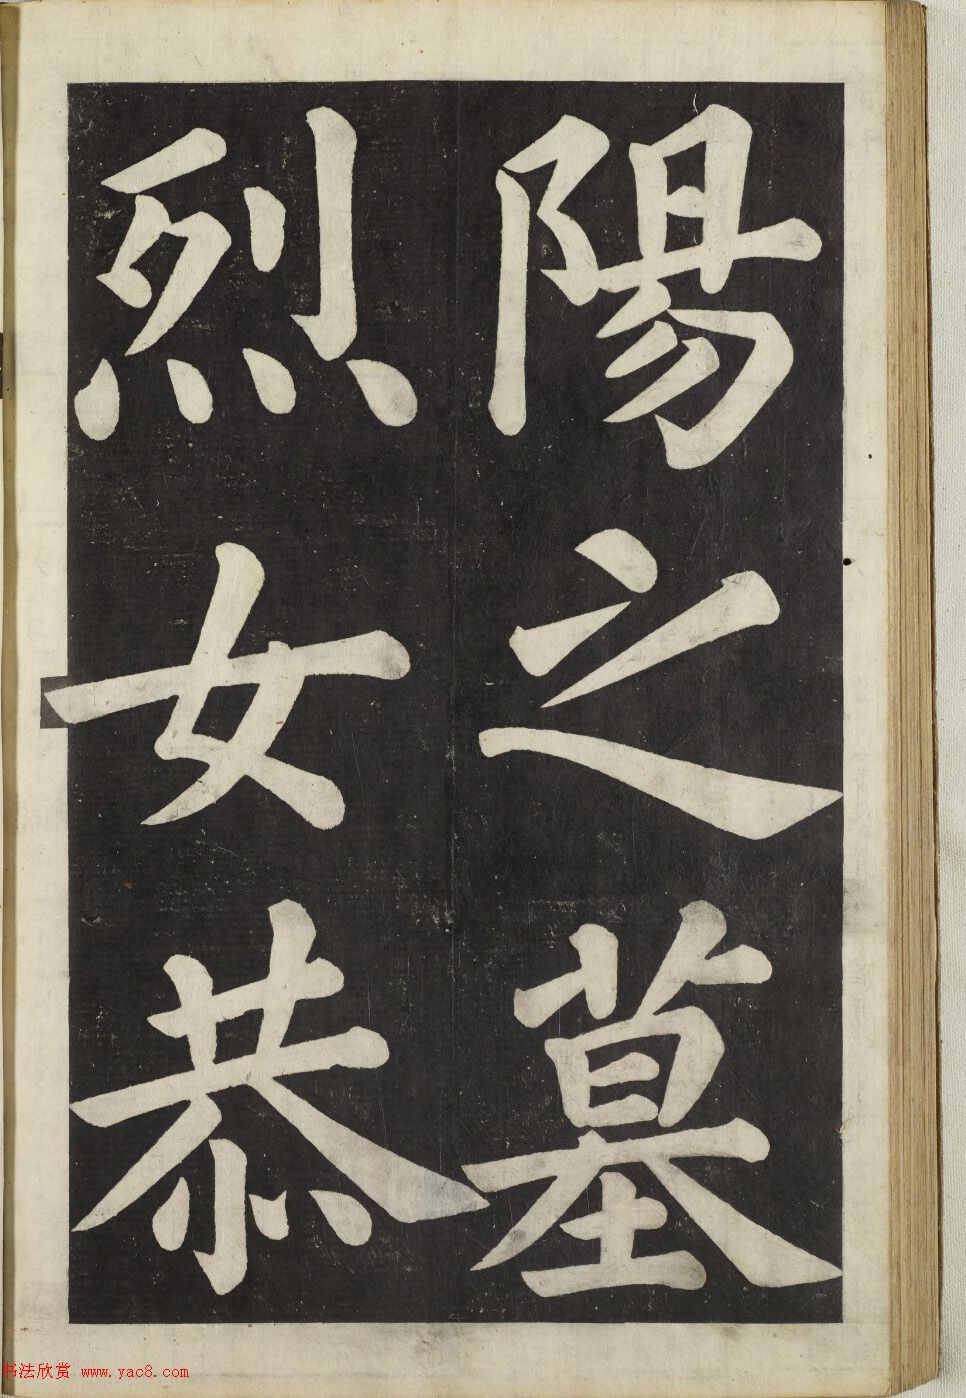 陽之墓
烈女恭
书法欣赏 www.yac8.com